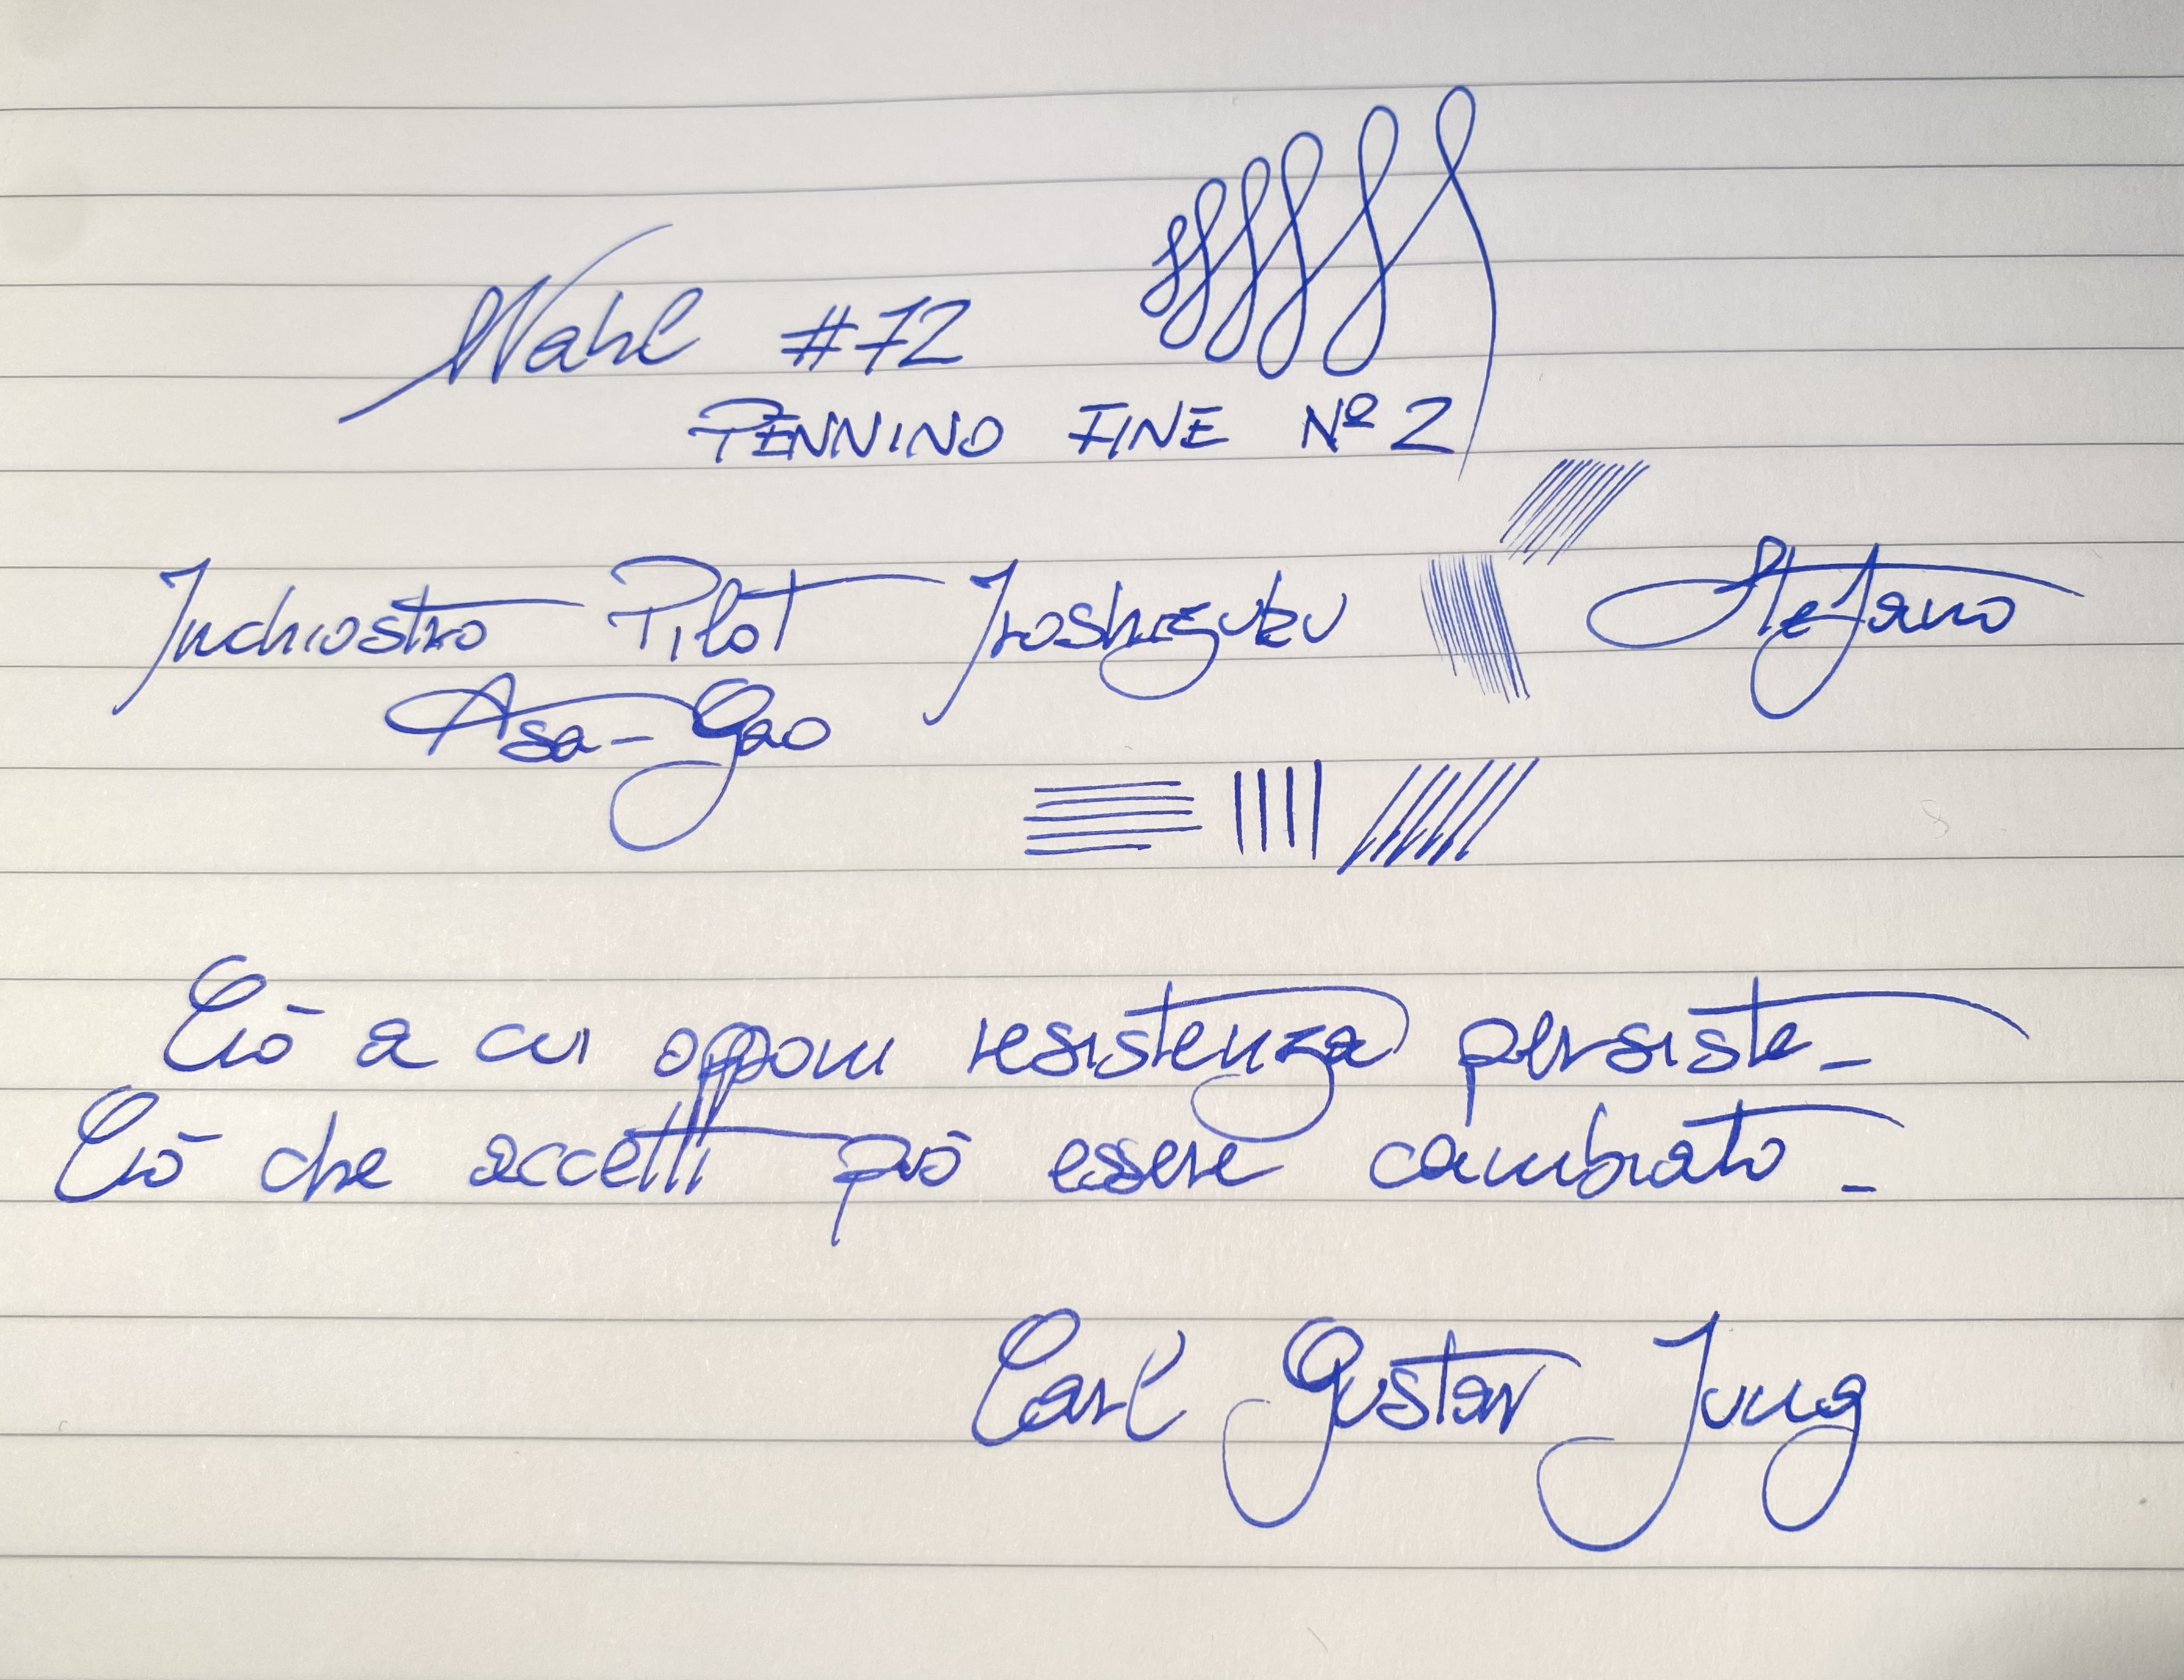 Wahl #72
PENNINO FINE Nº 2
Inchiostro Pilot Iroshizuku Stefano
Asa-Gao
Ciò a cui opponi resistenza persiste_
Ciò che accetti può essere cambiato_
Carl Gustav Jung